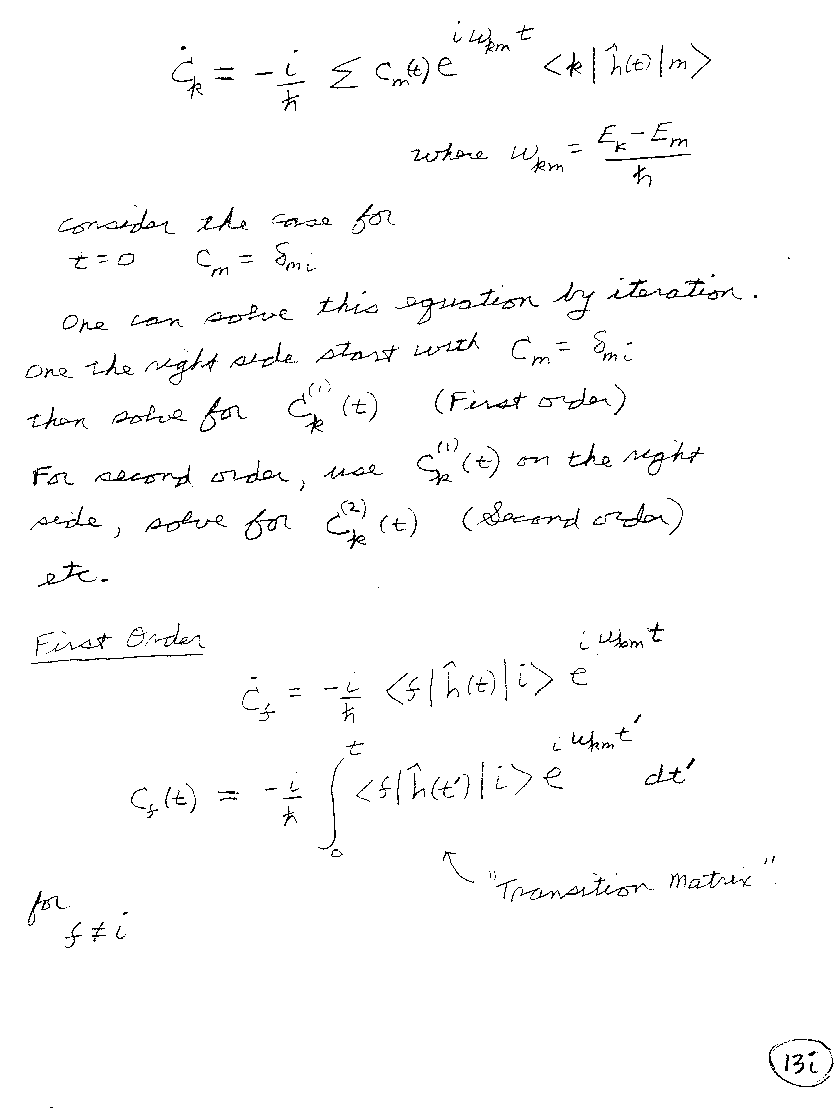 Ċ_k = -i/ħ Σ C_m(t) e^{iω_{km}t} <k|ĥ(t)|m>
where ω_{km} = (E_k - E_m)/ħ
consider the case for
t=0 C_m = δ_{mi}
One can solve this equation by iteration.
One the right side start with C_m = δ_{mi}
then solve for C_k^{(1)}(t) (First order)
For second order, use C_k^{(1)}(t) on the right
side, solve for C_k^{(2)}(t) (Second order)
etc.
First Order
Ċ_f = -i/ħ <f|ĥ(t)|i> e^{iω_{km}t}
C_f(t) = -i/ħ ∫_0^t <f|ĥ(t')|i> e^{iω_{km}t'} dt'
"Transition Matrix".
for
f ≠ i
13i